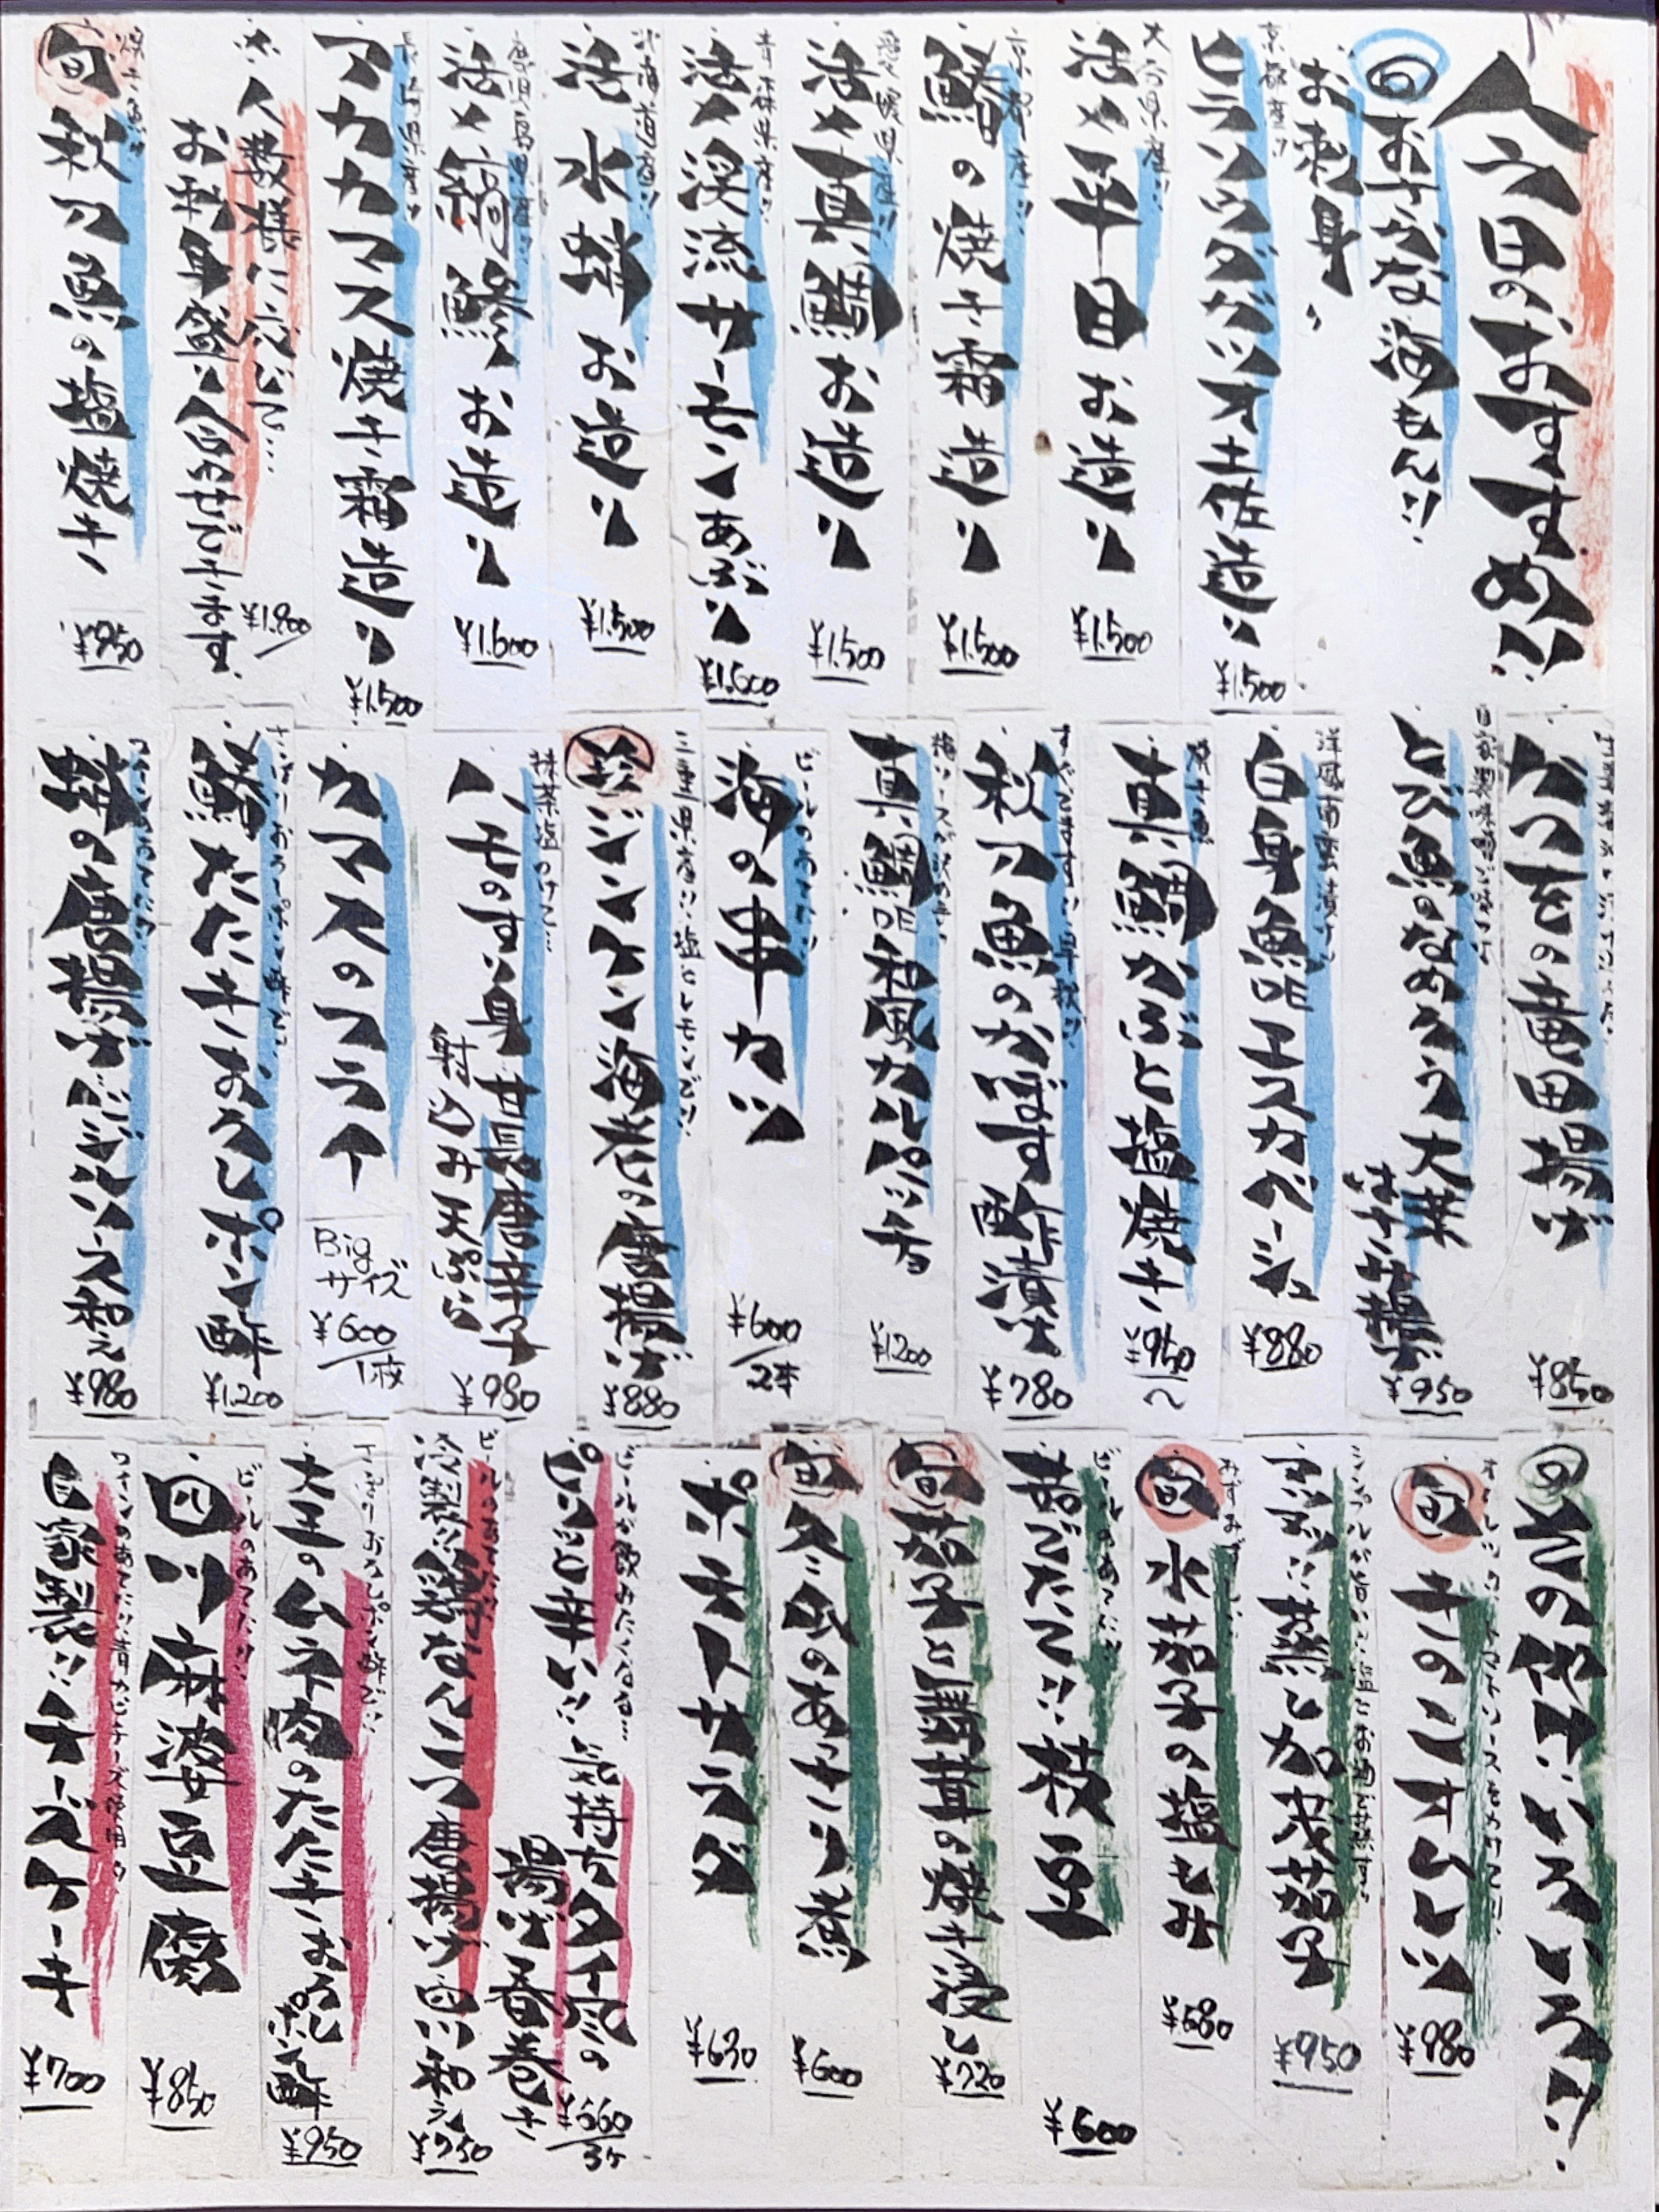 今日のおすすめ!!
旬 おさかな海もん!!
お刺身、
京都産!!
ヒラソウダガツオ土佐造り
¥1,500
大分県産!!
活〆平目お造り
¥1,500
京都産!!
鰆の焼き霜造り
¥1,500
愛媛県産!!
活〆真鯛お造り
¥1,500
青森県産!!
活〆渓流サーモンあぶり
¥1,600
北海道産!!
活 水蛸お造り
¥1,500
鹿児島県産!!
活〆縞鯵お造り
¥1,600
長崎県産!!
アカカマス焼き霜造り
¥1,500
※人数様に応じて…
お刺身盛り合わせできます。
¥1,800/
焼き魚!!
旬 秋刀魚の塩焼き
¥950
ガツオの竜田揚げ
¥850
とび魚のなめろう大葉
はさみ揚げ
¥950
洋風南蛮漬け!
白身魚のエスカベーシュ
¥880
焼き魚
真鯛かぶと塩焼き
¥950〜
秋刀魚のかぼす酢漬け
¥780
真鯛の和風カルパッチョ
¥1200
ビールのあてに!!
海の串カツ
¥600/2本
三重県産!! 塩とレモンで!!
珍 ジンケン海老の唐揚げ
¥880
抹茶塩のけて…
ハモのすり身 甘長唐辛子
射込み天ぷら
¥980
カマスのフライ
Bigサイズ
¥600/1枚
さっぱりおろしポン酢で!!
鰆たたきおろしポン酢
¥1,200
蛸の唐揚げバジルソース和え
¥980
その他いろいろ!!
旬 きのこオムレツ
¥980
冷製!! 蒸し加茂茄子
¥950
旬 水茄子の塩もみ
¥680
ビールのあてに!!
茹でたて!! 枝豆
¥600
旬 茄子と舞茸の焼き浸し
¥720
旬 冬瓜のあっさり煮
¥600
ポテトサラダ
¥630
ビールが飲みたくなる…
ピリと辛い!! 気持ちタイ風の
揚げ春巻き
¥560/3ヶ
ビールのあてに!!
鶏なんこつ唐揚げ四川和え
¥750
さっぱりおろしポン酢で!!
大王のムネ肉のたたきおろしポン酢
¥950
ビールのあてに!!
四川麻婆豆腐
¥850
ワインのあてに!! 青カビチーズ使用
自家製!! チーズケーキ
¥700